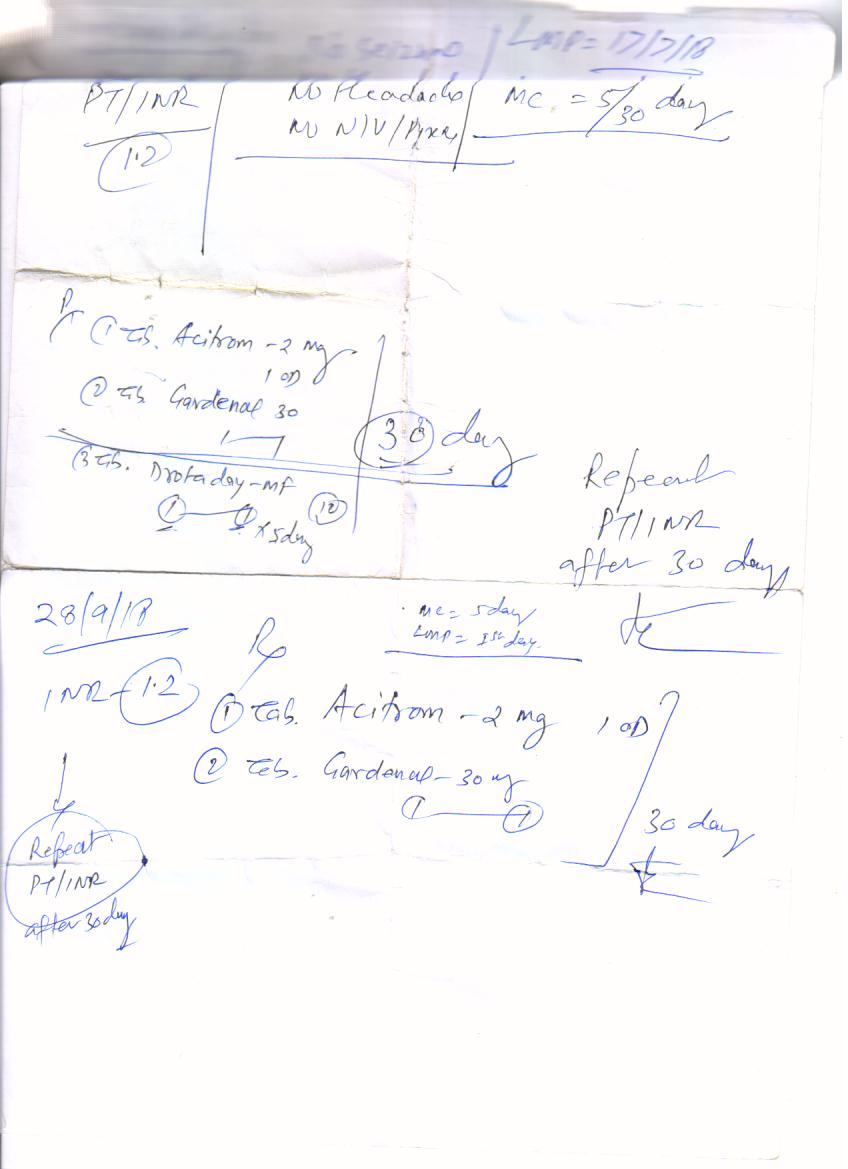 No Seizure LMP = 17/7/18
PT/INR No Headache MC = 5/30 day
1.2 No N/V/
① Tab. Acitrom - 2 mg
1 OD
② Tab. Gardenal 30
30 day
③ Tab. Drotaday-MF
① ① x 5 day 10
Repeat
PT/INR
after 30 day
28/9/18 MC = 5 day
Rx LMP = 1st day.
INR - 1.2 ① Tab. Acitrom - 2 mg 1 OD
② Tab. Gardenal - 30 mg
① ①
30 day
Repeat
PT/INR
after 30 day